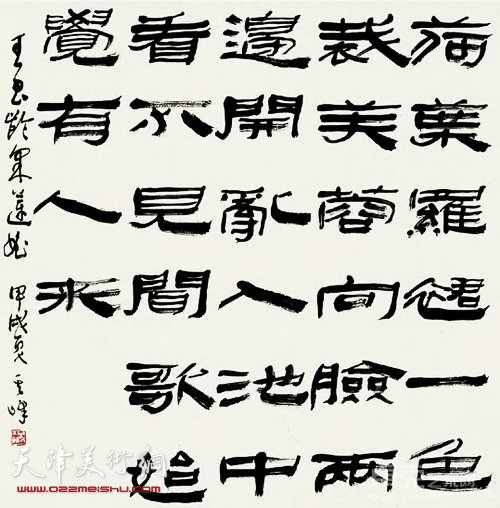 荷葉羅裙一色
裁芙蓉向臉兩
邊開亂入池中
看不見聞歌始
覺有人來
王昌齡采蓮曲 甲戌夏
天津美術網
www.022meishu.com